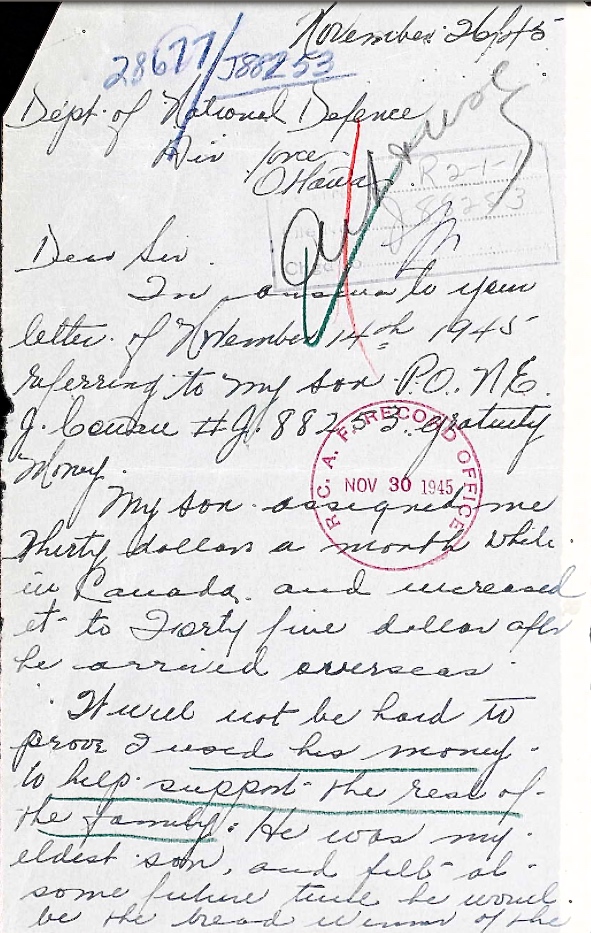 November 26/45
28677/J88253
Dept. of National Defence
Air Force
Ottawa.
R-2-1-1
J 88253
Dear Sir.
In answer to your
letter of November 14th 1945
referring to my son P.O. N.E.
J. #J. 88253. gratuity
Money.
R.C.A.F. RECORD OFFICE
NOV 30 1945
My son assigned me
thirty dollars a month while
in Canada. and increased
et to Forty five dollar after
he arrived overseas.
It will not be hard to
prove I used his money.
to help support the rest of
the family. He was my
eldest son, and felt at
some future time he would
be the bread winner of the